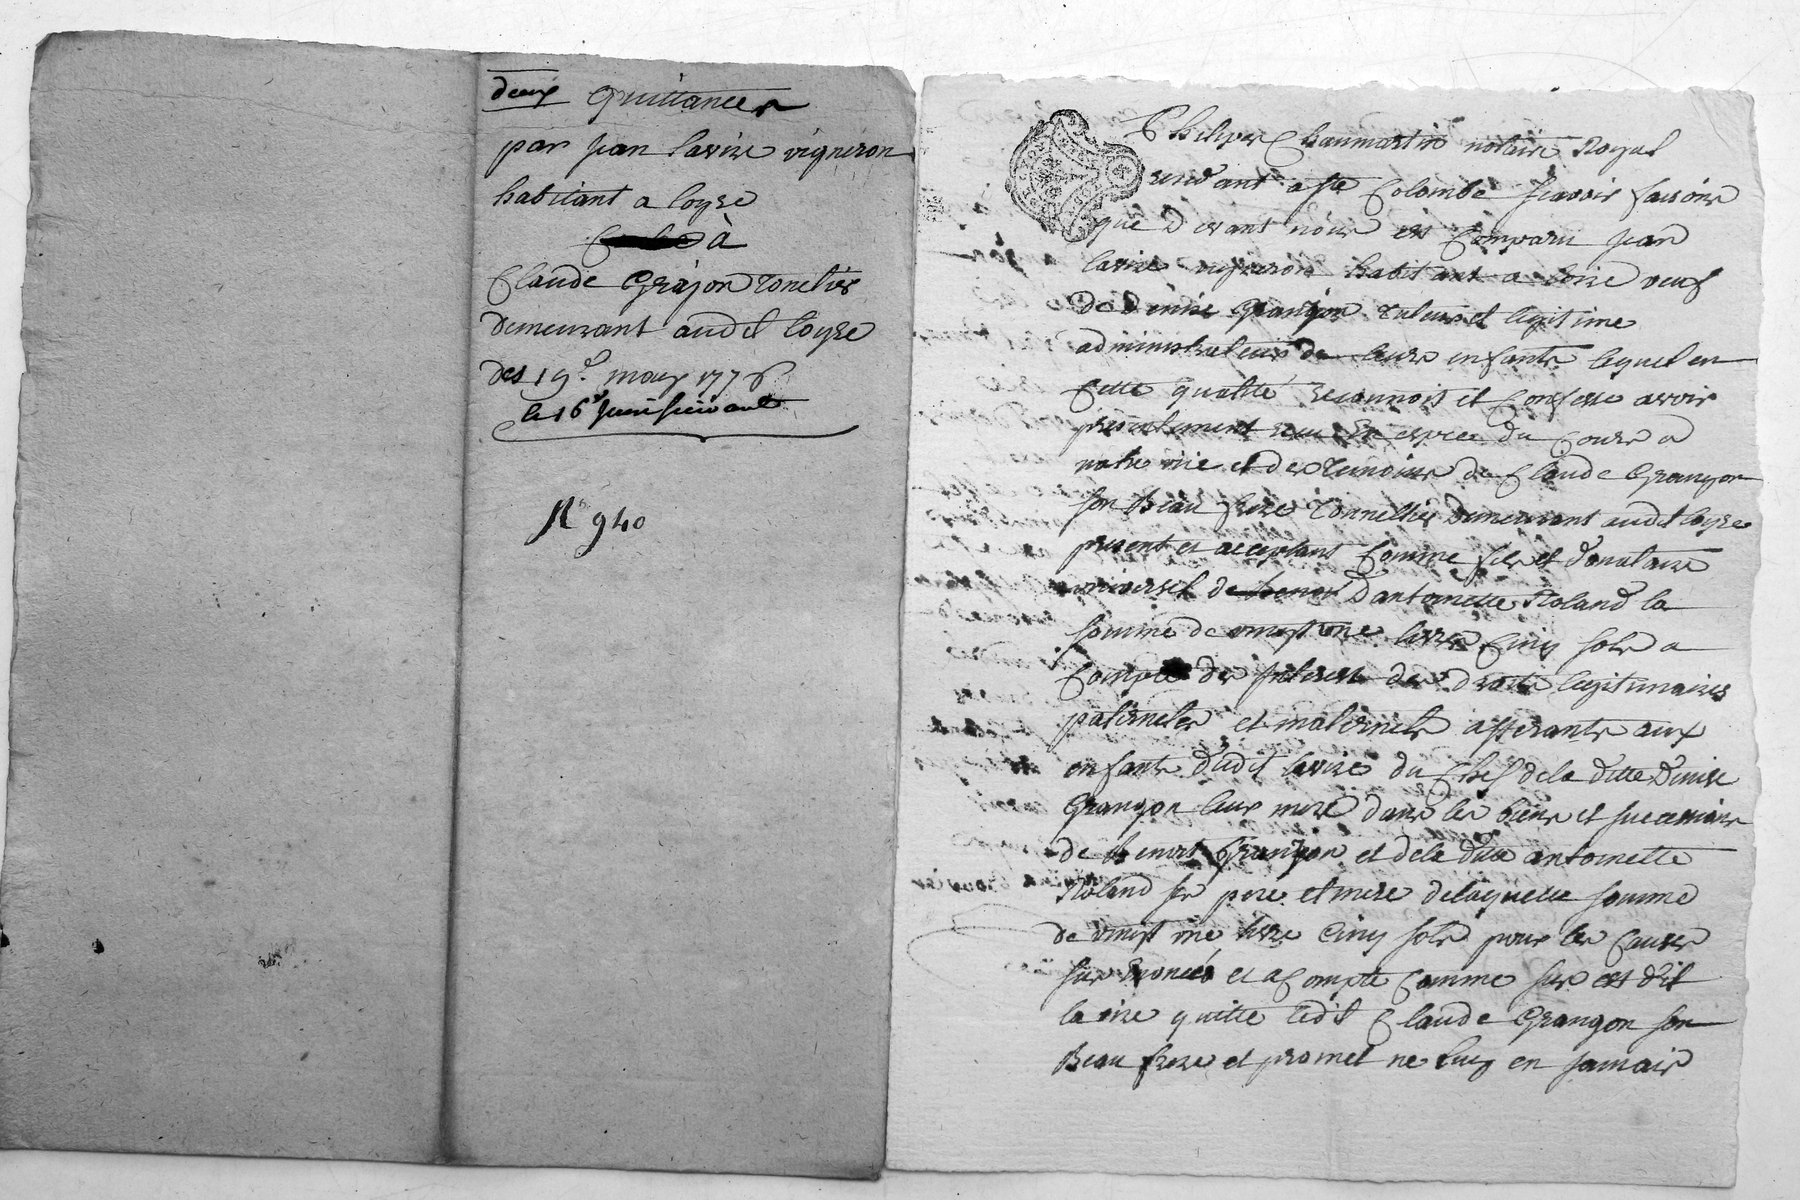 deux Quittances
par Jean Lavire vigneron
habitant a loyre
à
Claude Grajon Tonelier
demeurant audit loyre
des 19e. may 1776
le 16e Juin suivant
N 940
Philipes Chaumartin notaire Royal
rendant a ste Colombe scavoir faisons
que devant nous est Comparu Jean
lavire vigneron habitant a loire veuf
de denise Granjon tuteur et legitime
administrateur de leurs enfants lequel en
Cette qualité reconnoit et Confesse avoir
presentement receu En espece du Cours a
notre vüe et des temoins de Claude Grangon
son Beau frere Tonnellier demeurant audit loyre
present et acceptant Comme fils et donataire
universel d'antoinette Roland la
somme de vingt une livres Cinq sols a
Compte des interest des droits legitimaires
paternels et maternels afferants aux
enfants dudit lavire du Chef de la ditte Denise
Grangon leur mere dans les biens et successions
de Benoit Grangon et dela ditte antoinette
Roland ses pere et mere de laquelle somme
de vingt une livre Cinq sols pour les Causes
sus Enoncés et a Compte Comme sus est dit
lavire quitte ledit Claude Grangon son
Beau frere et promet ne luy en jamais